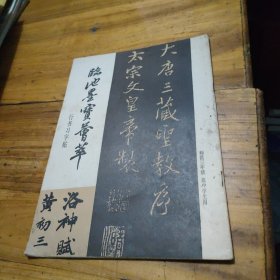 大唐三藏聖教序
太宗文皇帝製
臨池墨寶薈萃
行書习字帖
洛神賦
黄初三